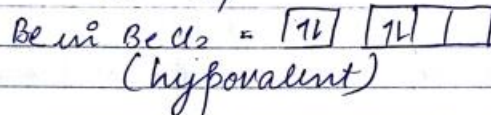 Be in BeCl₂ = [1L] [1L] [ ]
(hypovalent)